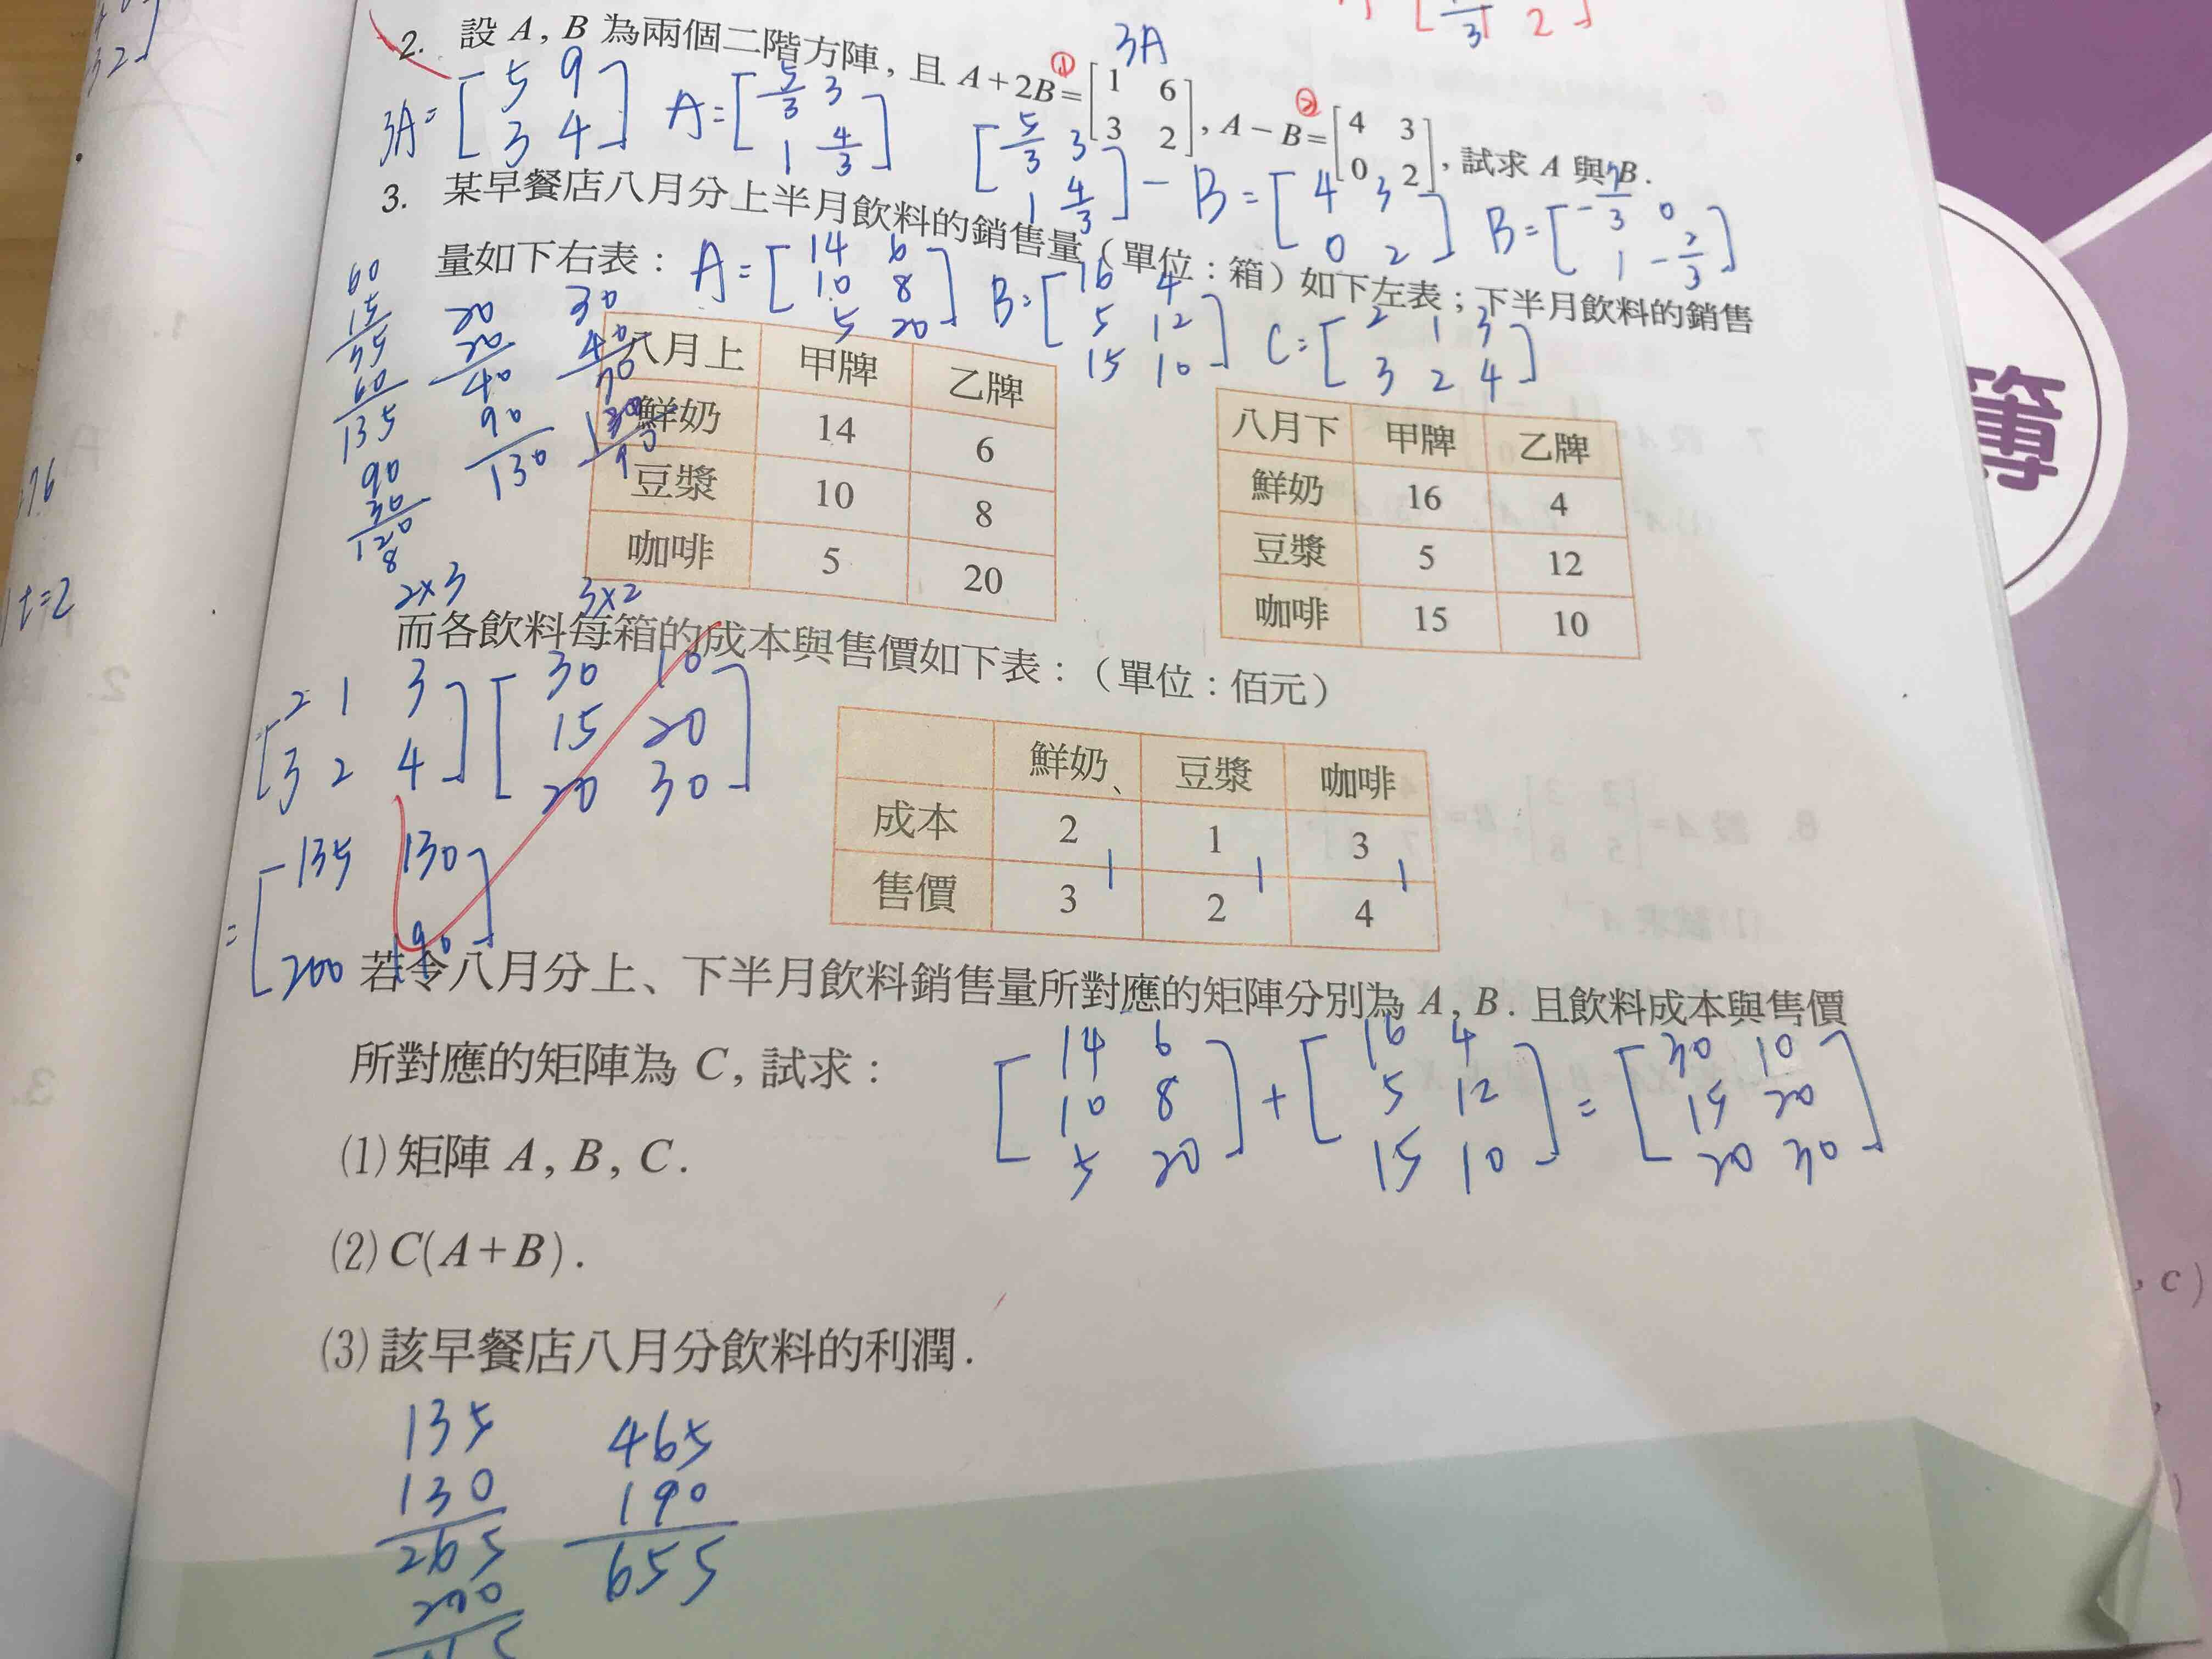 3 2
2. 設 A, B 為兩個二階方陣, 且 A+2B=[1 6 3 2], A-B=[4 3 0 2], 試求 A 與 B.
① 3A ②
3A=[5 9 3 4] A=[5/3 3 1 4/3] [5/3 3 1 4/3] - B = [4 3 0 2] B=[-7/3 0 1 -2/3]
3. 某早餐店八月分上半月飲料的銷售量(單位:箱)如下左表;下半月飲料的銷售
量如下右表:
A=[14 6 10 8 5 20] B=[16 4 5 12 15 10] C=[2 1 3 3 2 4]
八月上 甲牌 乙牌
鮮奶 14 6
豆漿 10 8
咖啡 5 20
八月下 甲牌 乙牌
鮮奶 16 4
豆漿 5 12
咖啡 15 10
60 20 30
15 20 40
75 40 70
60 90
135 130
90
30
120
8
t=2
2×3 3×2
而各飲料每箱的成本與售價如下表:(單位:佰元)
[2 1 3 3 2 4] [30 10 15 20 20 30]
= [135 130 200 190]
鮮奶、 豆漿 咖啡
成本 2 1 3
售價 3 2 4
1 1 1
若令八月分上、下半月飲料銷售量所對應的矩陣分別為 A, B. 且飲料成本與售價
所對應的矩陣為 C, 試求:
[14 6 10 8 5 20] + [16 4 5 12 15 10] = [30 10 15 20 20 30]
(1)矩陣 A, B, C.
(2)C(A+B).
(3)該早餐店八月分飲料的利潤.
135 465
130 190
265 655
200
簿
, c)